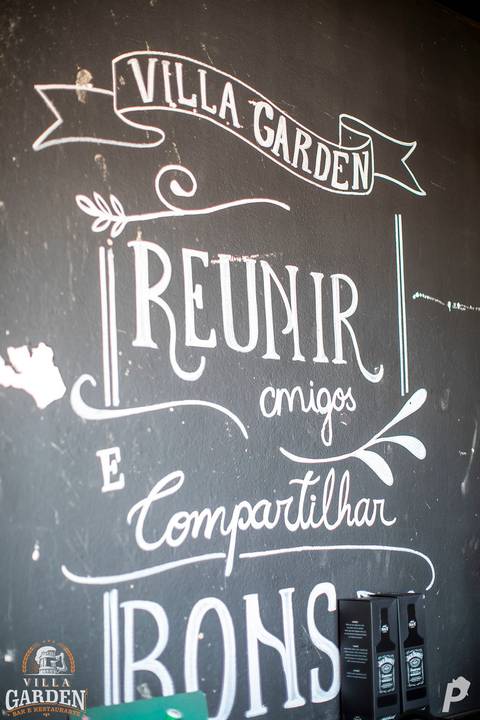 VILLA GARDEN
REUNIR
amigos
E
Compartilhar
BONS
JACK DANIEL'S
VILLA
GARDEN
BAR E RESTAURANTE
P